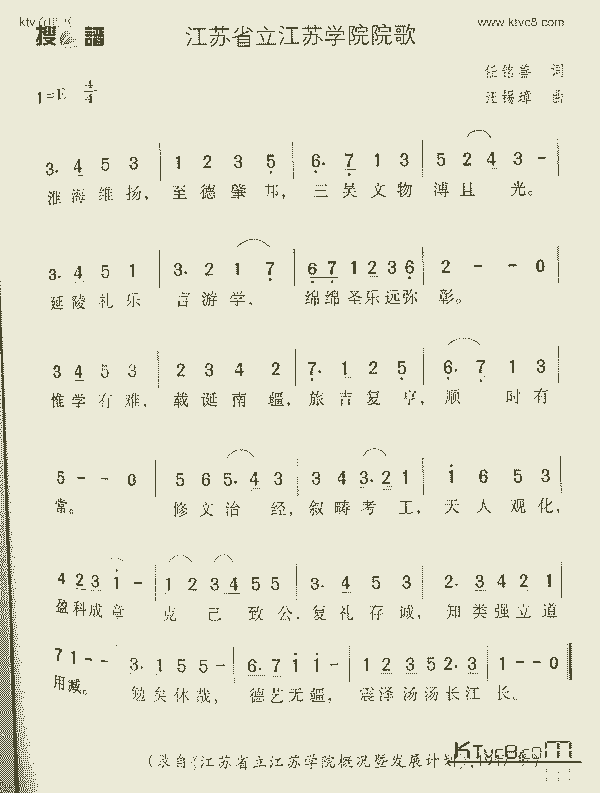 www.ktvc8.com
搜 谱
江苏省立江苏学院院歌
任铭善 词
汪锡璋 曲
1=E 4/4
3. 4 5 3 | 1 2 3 5 | 6. 7 1 3 | 5 2 4 3 - |
淮海维扬，至德肇邦，三吴文物溥且光。
3. 4 5 1 | 3. 2 1 7 | 6 7 1 2 3 6 | 2 - - 0
延陵礼乐言游学，绵绵圣乐远弥彰。
3 4 5 3 | 2 3 4 2 | 7. 1 2 5 | 6. 7 1 3
惟学有难，载诞南疆，旅吉复亨，顺时有
5 - - 0 | 5 6 5. 4 3 | 3 4 3. 2 1 | 1 6 5 3
常。修文治经，叙畴考工，天人观化，
4 2 3 1 - | 1 2 3 4 5 5 | 3. 4 5 3 | 2. 3 4 2 1
盈科成章 克己致公，复礼存诚，知类强立道
7 1 - - | 3. 1 5 5 - | 6. 7 1 1 - | 1 2 3 5 2. 3 | 1 - - 0
用臧。勉矣休哉，德艺无疆，震泽汤汤长江长。
（录自《江苏省立江苏学院概况暨发展计划》1947年）
KTvc8.com